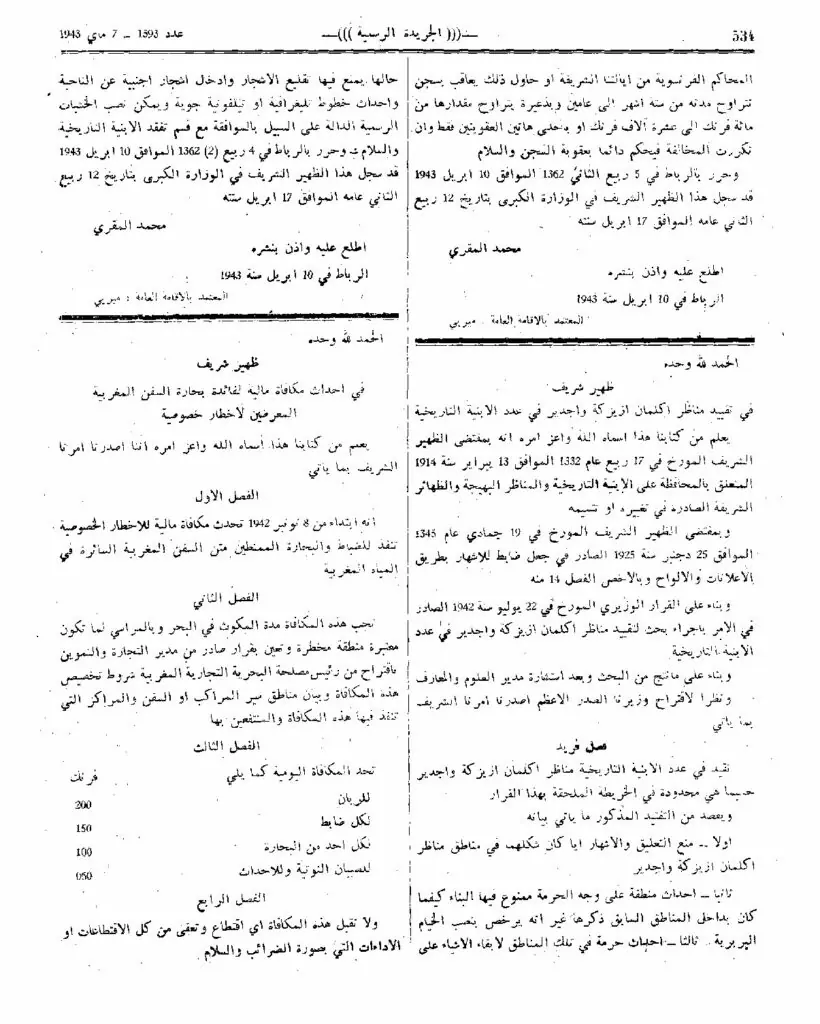 534
—(((الجريدة الرسمية)))—
عدد 1593 - 7 ماي 1943
المحاكم الفرنسوية من ايالتنا الشريفة او حاول ذلك يعاقب بسجن
تتراوح مدته من ستة اشهر الى عامين وبذعيرة يتراوح مقدارها من
مائة فرنك الى عشرة آلاف فرنك او باحدى هاتين العقوبتين فقط وان
تكررت المخالفة فيحكم دائما بعقوبة السجن والسلام
وحرر بالرباط في 5 ربيع الثاني 1362 الموافق 10 ابريل 1943
قد سجل هذا الظهير الشريف في الوزارة الكبرى بتاريخ 12 ربيع
الثاني عامه الموافق 17 ابريل سنته
محمد المقري
اطلع عليه واذن بنشره
الرباط في 10 ابريل سنة 1943
المعتمد بالاقامة العامة : ميريي
الحمد لله وحده
ظهير شريف
في تقييد مناظر اكلمان ازيزكة واجدير في عدد الابنية التاريخية
يعلم من كتابنا هذا اسماه الله واعز امره انه بمقتضى الظهير
الشريف المورخ في 17 ربيع عام 1332 الموافق 13 يبراير سنة 1914
المتعلق بالمحافظة على الابنية التاريخية والمناظر البهيجة والظهائر
الشريفة الصادرة في تغييره او تتميمه
وبمقتضى الظهير الشريف المورخ في 19 جمادي عام 1345
الموافق 25 دجنبر سنة 1925 الصادر في جعل ضابط للاشهار بطريق
الاعلانات والالواح وبالاخص الفصل 14 منه
وبناء على القرار الوزيري المورخ في 22 يوليو سنة 1942 الصادر
في الامر باجراء بحث لتقييد مناظر اكلمان ازيزكة واجدير في عدد
الابنية التاريخية
وبناء على ما نتج من البحث وبعد استشارة مدير العلوم والمعارف
ونظرا لاقتراح وزيرنا الصدر الاعظم اصدرنا امرنا الشريف
بما ياتي
فصل فريد
تقيد في عدد الابنية التاريخية مناظر اكلمان ازيزكة واجدير
حسبما هي محدودة في الخريطة الملحقة بهذا القرار
ويقصد من التقييد المذكور ما ياتي بيانه
اولا — منع التعليق والاشهار ايا كان شكلهما في مناطق مناظر
اكلمان ازيزكة واجدير
ثانيا — احداث منطقة على وجه الحرمة ممنوع فيها البناء كيفما
كان بداخل المناطق السابق ذكرها غير انه يرخص بنصب الخيام
البربرية . ثالثا — احداث حرمة في تلك المناطق لابقاء الاشياء على
حالها يمنع فيها تقليع الاشجار وادخال اشجار اجنبية عن الناحية
واحداث خطوط تليغرافية او تيلفونية جوية ويمكن نصب الخشبات
الرسمية الدالة على السبيل بالموافقة مع قسم تفقد الابنية التاريخية
والسلام وحرر بالرباط في 4 ربيع (2) 1362 الموافق 10 ابريل 1943
قد سجل هذا الظهير الشريف في الوزارة الكبرى بتاريخ 12 ربيع
الثاني عامه الموافق 17 ابريل سنته
محمد المقري
اطلع عليه واذن بنشره
الرباط في 10 ابريل سنة 1943
المعتمد بالاقامة العامة : ميريي
الحمد لله وحده
ظهير شريف
في احداث مكافاة مالية لفائدة بحارة السفن المغربية
المعرضين لاخطار خصوصية
يعلم من كتابنا هذا اسماه الله واعز امره اننا اصدرنا امرنا
الشريف بما ياتي
الفصل الاول
انه ابتداء من 8 نونبر 1942 تحدث مكافاة مالية للاخطار الخصوصية
تنفذ للضباط والبحارة الممتطين متن السفن المغربية السائرة في
المياه المغربية
الفصل الثاني
تجب هذه المكافاة مدة المكوث في البحر وبالمراسي لما تكون
معتبرة منطقة مخطرة وتعين بقرار صادر من مدير التجارة والتموين
باقتراح من رئيس مصلحة البحرية التجارية المغربية شروط تخصيص
هذه المكافاة وبيان مناطق سير المراكب او السفن والمراكز التي
تنفذ فيها هذه المكافاة والمنتفعين بها
الفصل الثالث
تحد المكافاة اليومية كما يلي فرنك
للربان 200
لكل ضابط 150
لكل احد من البحارة 100
للصبيان النوتية وللاحداث 050
الفصل الرابع
ولا تقبل هذه المكافاة اي اقتطاع وتعفى من كل الاقتطاعات او
الاداءات التي بصورة الضرائب والسلام